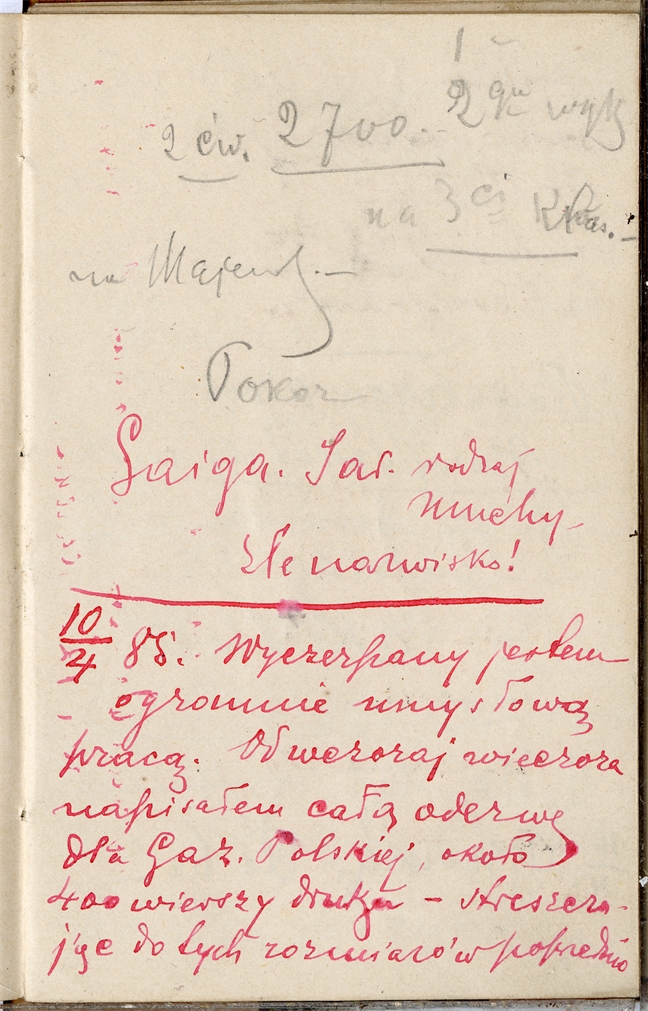 1
2 ćw. 2700. 2
na 3ci
na Majewsk. –
Pokor
Gaiga. Jaś. rodzaj
muchy –
Złe nazwisko!
10/4 85. Wyczerpany jestem
ogromnie umysłową
pracą. Od wczoraj wieczora
napisałem całą oderwę
dla Gaz. Polskiej, około
400 wierszy druku – streszcza-
jąc do tych rozmiarów poprzednio